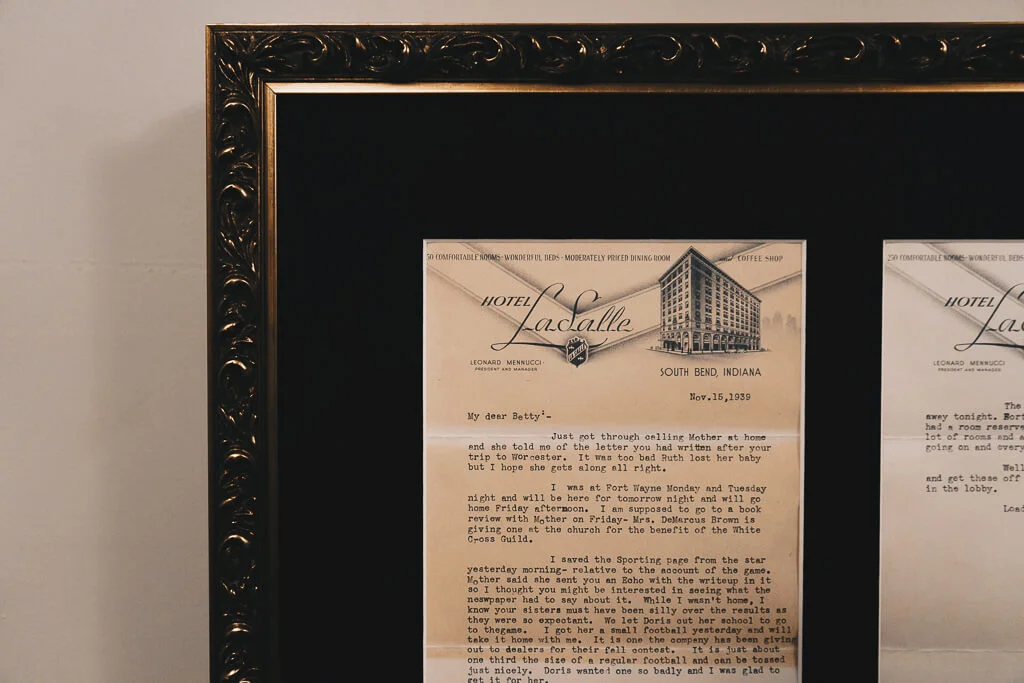 50 COMFORTABLE ROOMS-WONDERFUL BEDS-MODERATELY PRICED DINING ROOM and COFFEE SHOP
HOTEL LaSalle
LEONARD MENNUCCI
PRESIDENT AND MANAGER
SOUTH BEND, INDIANA
Nov.15,1939
My dear Betty:-
Just got through calling Mother at home
and she told me of the letter you had written after your
trip to Worcester. It was too bad Ruth lost her baby
but I hope she gets along all right.
I was at Fort Wayne Monday and Tuesday
night and will be here for tomorrow night and will go
home Friday afternoon. I am supposed to go to a book
review with Mother on Friday- Mrs. DeMarcus Brown is
giving one at the church for the benefit of the White
Cross Guild.
I saved the Sporting page from the star
yesterday morning- relative to the account of the game.
Mother said she sent you an Echo with the writeup in it
so I thought you might be interested in seeing what the
neswpaper had to say about it. While I wasn't home, I
know your sisters must have been silly over the results as
they were so expectant. We let Doris cut her school to go
to thegame. I got her a small football yesterday and will
take it home with me. It is one the company has been giving
out to dealers for their fall contest. It is just about
one third the size of a regular football and can be tossed
just nicely. Doris wanted one so badly and I was glad to
get it for her.
250 COMFORTABLE ROOMS-WONDERFUL BEDS
HOTEL La
LEONARD MENNUCCI
PRESIDENT AND MANAGER
The
away tonight. Fort
had a room reserve
lot of rooms and a
going on and every
Well
and get these off
in the lobby.
Load